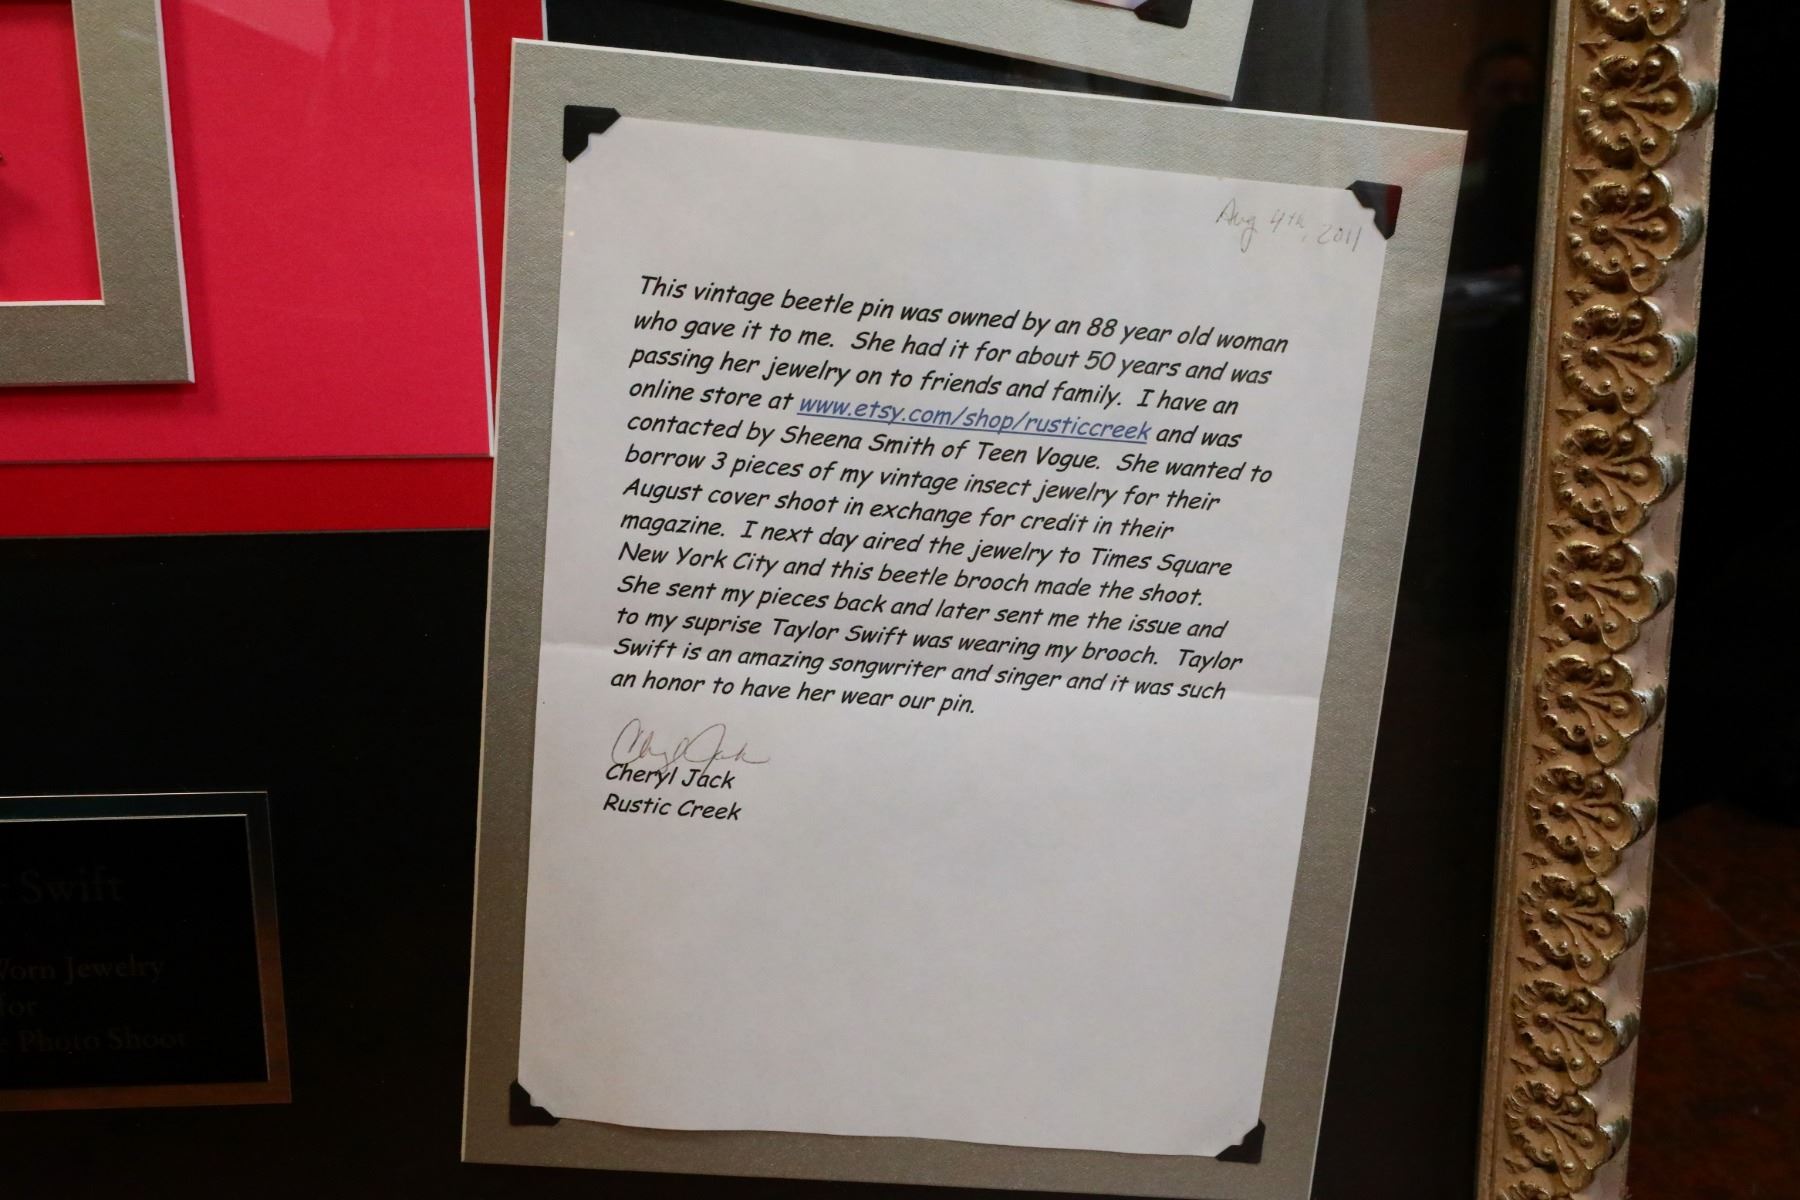 Aug 4th, 2011
This vintage beetle pin was owned by an 88 year old woman
who gave it to me. She had it for about 50 years and was
passing her jewelry on to friends and family. I have an
online store at www.etsy.com/shop/rusticcreek and was
contacted by Sheena Smith of Teen Vogue. She wanted to
borrow 3 pieces of my vintage insect jewelry for their
August cover shoot in exchange for credit in their
magazine. I next day aired the jewelry to Times Square
New York City and this beetle brooch made the shoot.
She sent my pieces back and later sent me the issue and
to my suprise Taylor Swift was wearing my brooch. Taylor
Swift is an amazing songwriter and singer and it was such
an honor to have her wear our pin.
Cheryl Jack
Cheryl Jack
Rustic Creek
Swift
Worn Jewelry
for
Photo Shoot